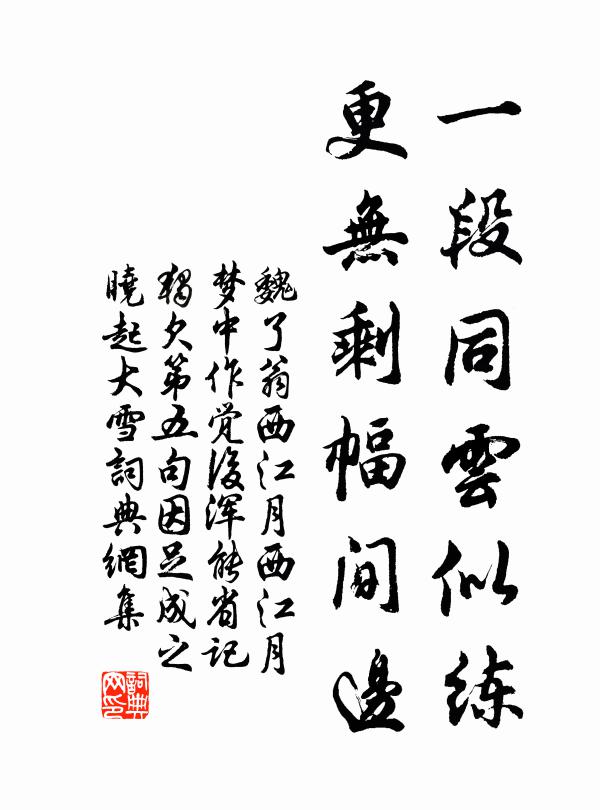 一段同雲似练
更無剩幅間邊
魏了翁西江月西江月
梦中作觉後浑能省记
独欠第五句因足成之
曉起大雪詞典網集
詞典網印